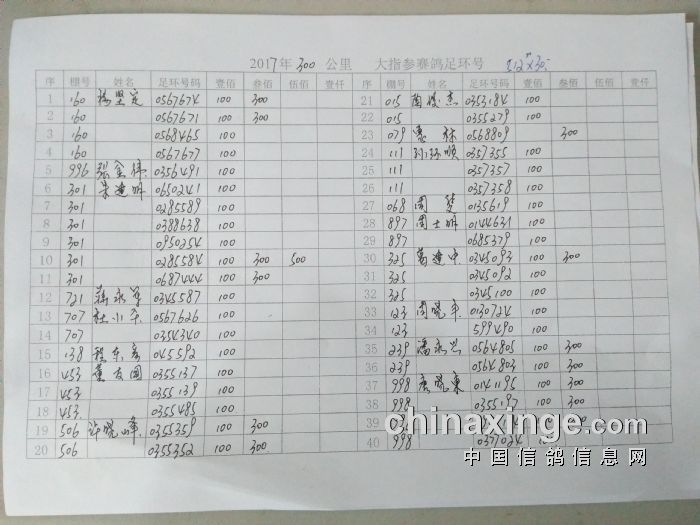 2017年 300 公里 大指参赛鸽足环号
序 棚号 姓名 足环号码 壹佰 叁佰 伍佰 壹仟 序 棚号 姓名 足环号码 壹佰 叁佰 伍佰 壹仟
1 160 杨坚定 0567674 100 300 21 015 陶俊杰 0353184 100
2 160 0567671 100 300 22 015 0355279 100
3 160 0568465 100 23 079 0568809 300
4 160 0567677 100 24 111 孙环顺 0357355 100
5 996 张金伟 0356491 100 25 111 0357357 100
6 301 朱建明 0650241 100 26 111 0357358 100
7 301 0285589 100 27 068 周 0135619 100
8 301 0388638 100 28 897 周士明 0144631 100
9 301 0950254 100 29 897 0685379 100
10 301 0285584 100 300 500 30 325 葛建中 0345093 100 300
11 301 0687444 100 300 31 325 0345092 100
12 721 蒋永军 0345587 100 32 325 0345100 100
13 707 杜小平 0567626 100 33 123 周晓平 0130724 100
14 707 0354340 100 34 123 599490 100
15 138 程东 045592 100 35 239 潘永兴 0564805 100 300
16 453 董友国 0355137 100 36 239 0564803 100 300
17 453 0355139 100 37 998 唐晓东 0141195 100 300
18 453 0355485 100 38 998 0355197 100 300
19 506 许晓峰 0355359 100 300 39 100 300
20 506 0355352 100 300 40 998 0377034 100
chinaxinge.com
中国信鸽信息网